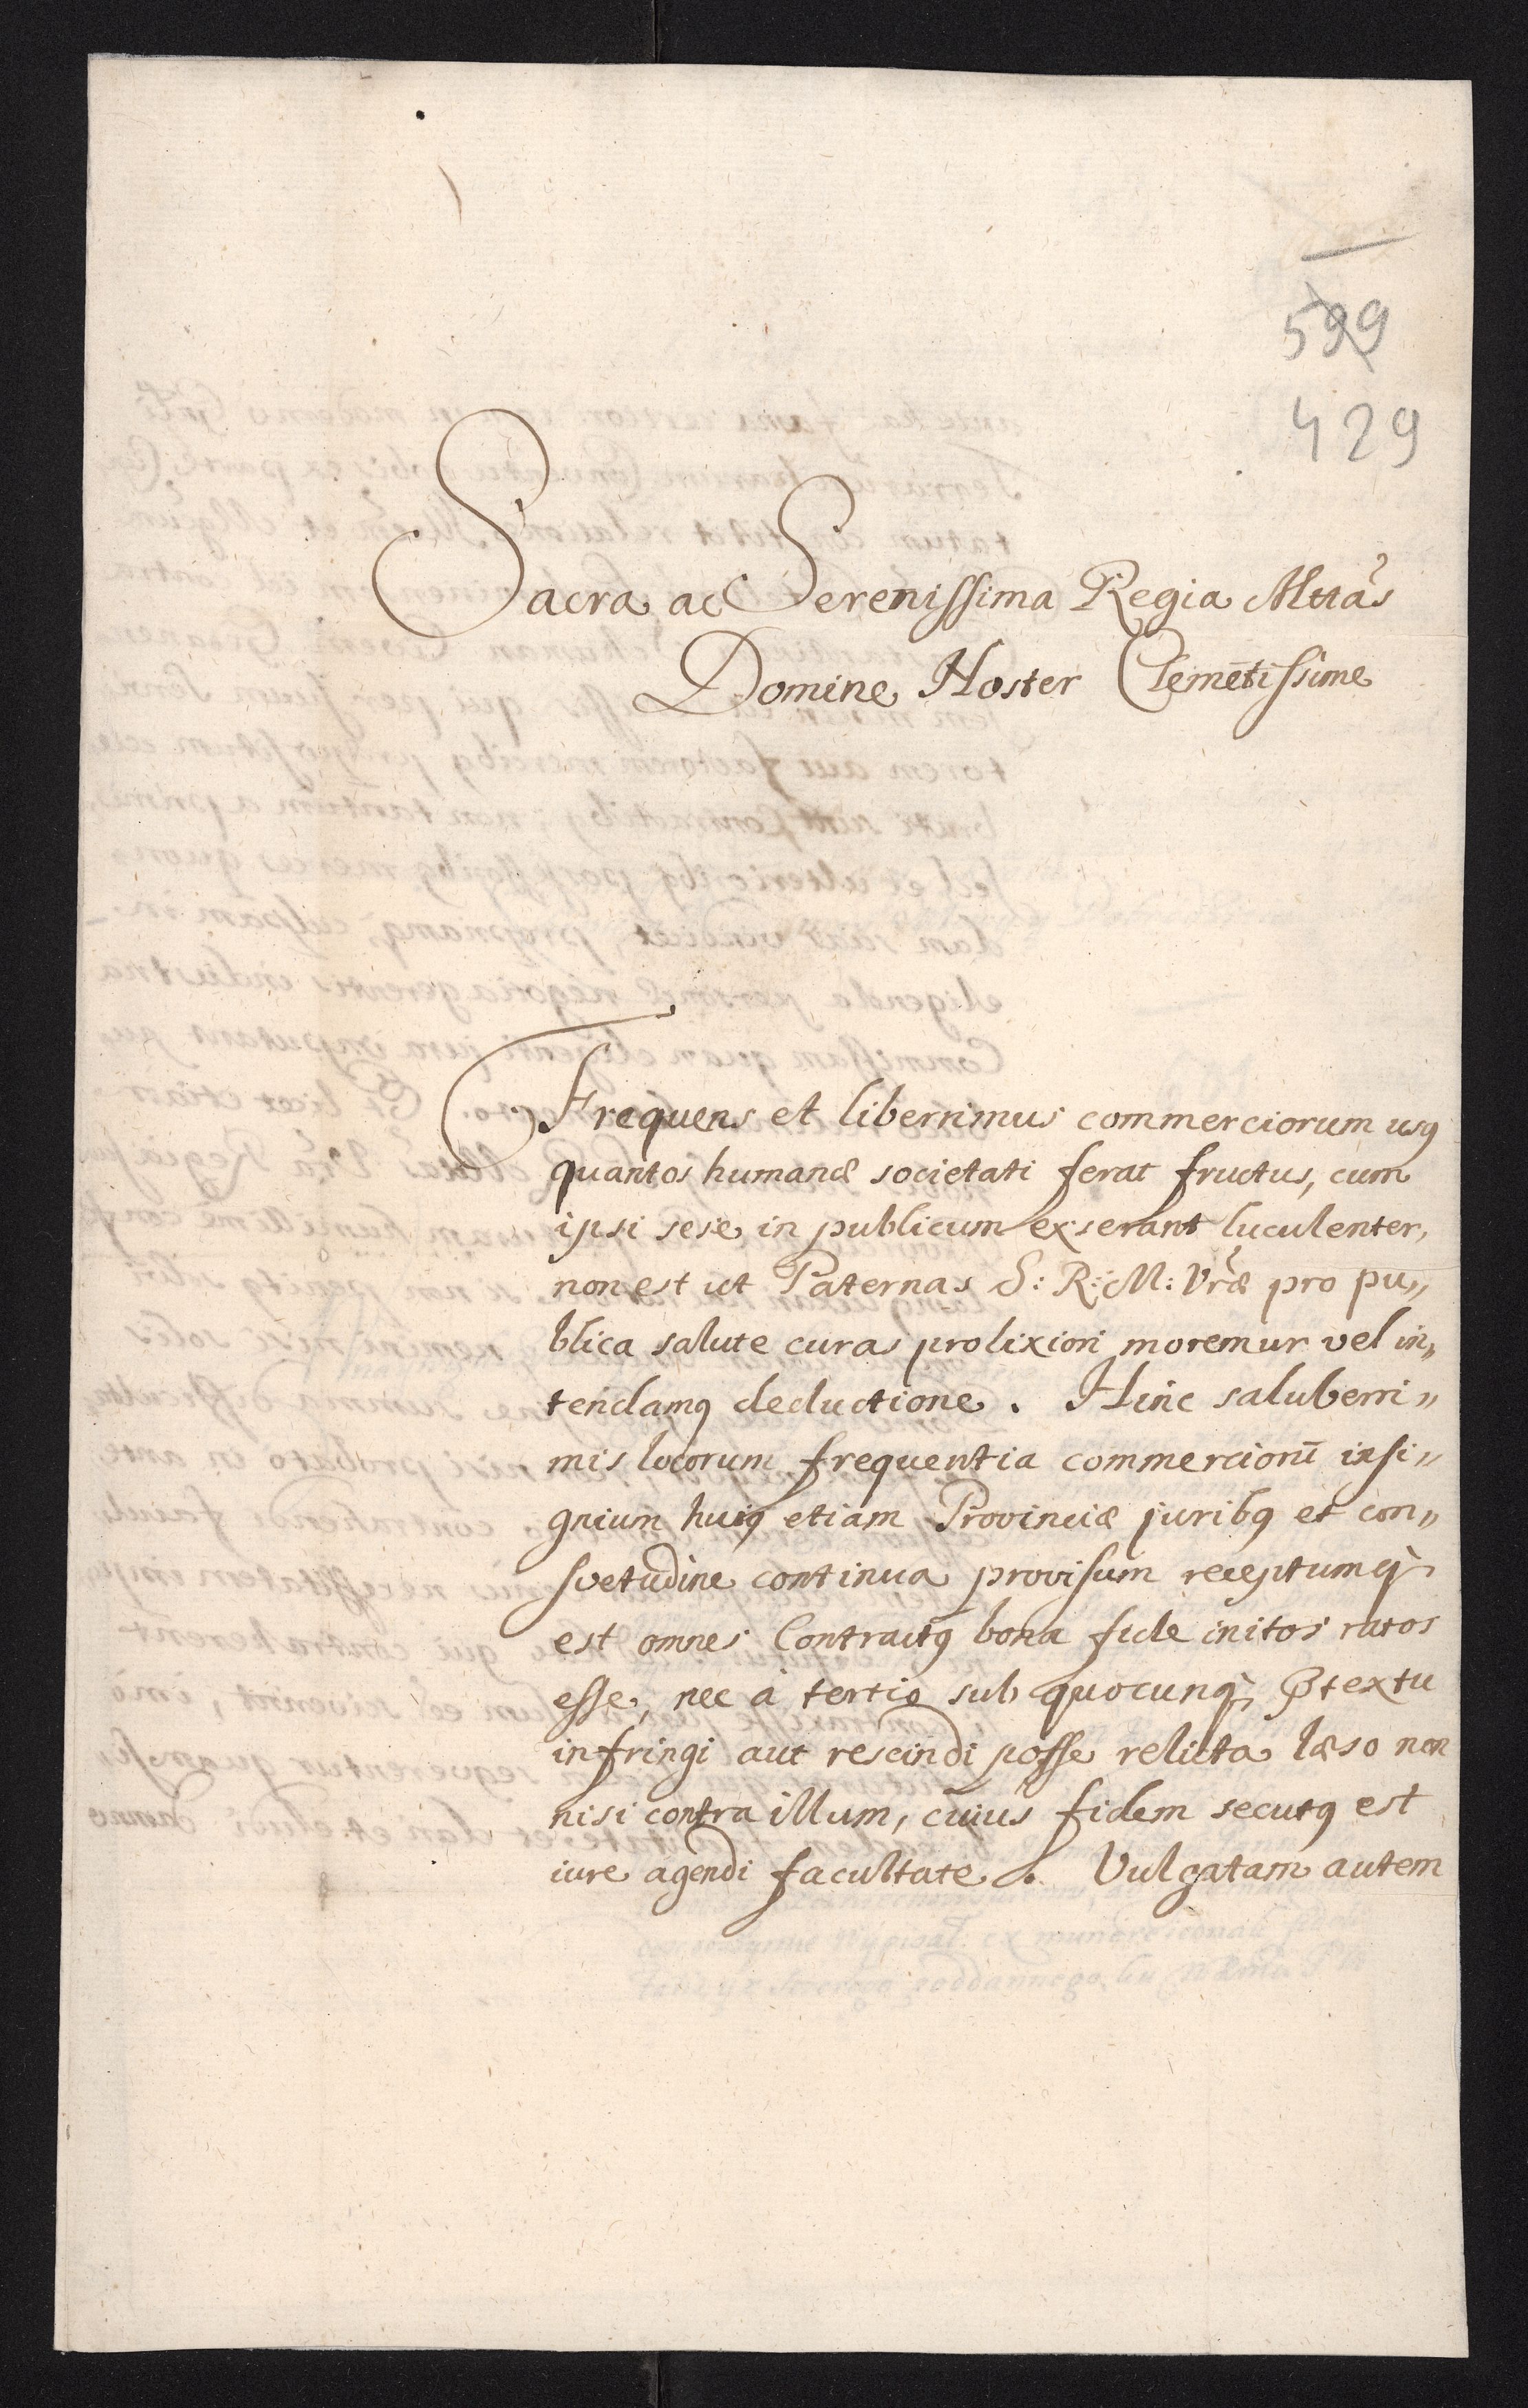 599
429
Sacra ac Serenissima Regia Mttas
Domine Noster Clemētissime
Frequens et liberrimus commerciorum usq
quantos humanæ societati ferat fructus, cum
ipsi sese in publicum exserant luculenter,
non est ut Paternas S: R: M: Vræ pro pu„
blica salute curas prolixiori moremur vel in„
tendamq deductione. Hinc saluberri„
mis locorum frequentia commerciorū insi„
gnium huiq etiam Provinciæ juribq et con„
svetudine continua provisum receptumq
est omnes Contractq bona fide initos ratos
esse, nec à tertio sub quocunq, prtextu
infringi aut rescindi posse relicta læso non
nisi contra illum, cuius fidem secutq est
iure agendi facultate. Vulgatam autem